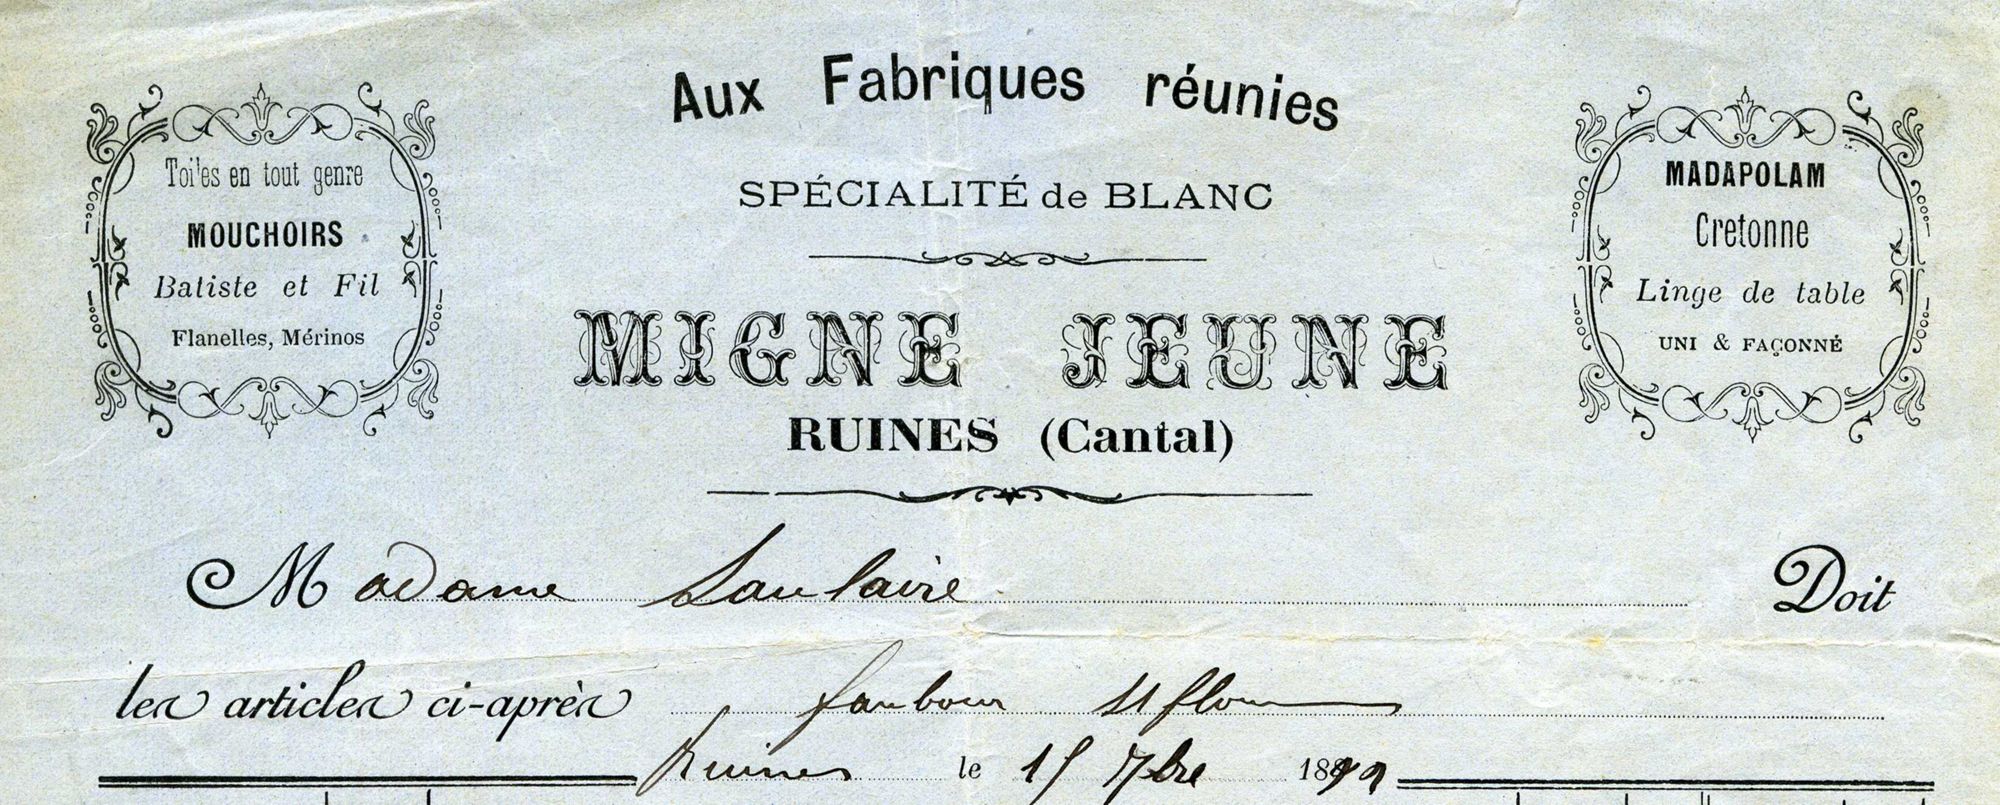 Aux Fabriques réunies
SPÉCIALITÉ de BLANC
Toiles en tout genre
MOUCHOIRS
Batiste et Fil
Flanelles, Mérinos
MADAPOLAM
Cretonne
Linge de table
UNI & FAÇONNÉ
MIGNE JEUNE
RUINES (Cantal)
Madame Saulaire Doit
les articles ci-après faubour St flour
Ruines le 15 7bre 1899